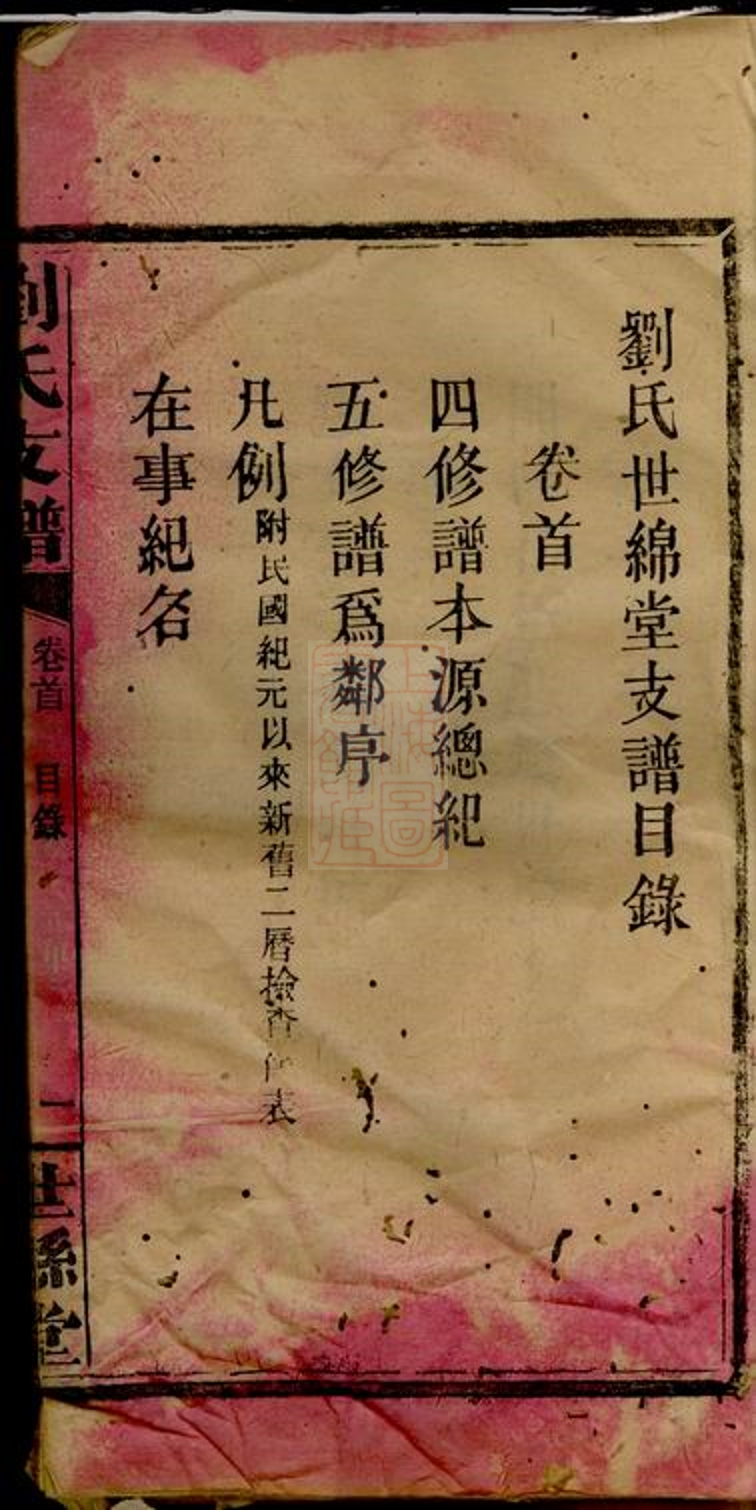 劉氏世綿堂支譜目錄
卷首
四修譜本源總紀
五修譜爲鄰序
凡例附民國紀元以來新舊二曆撿查 表
在事紀名
劉氏支譜 卷首 目錄 一 世綿堂